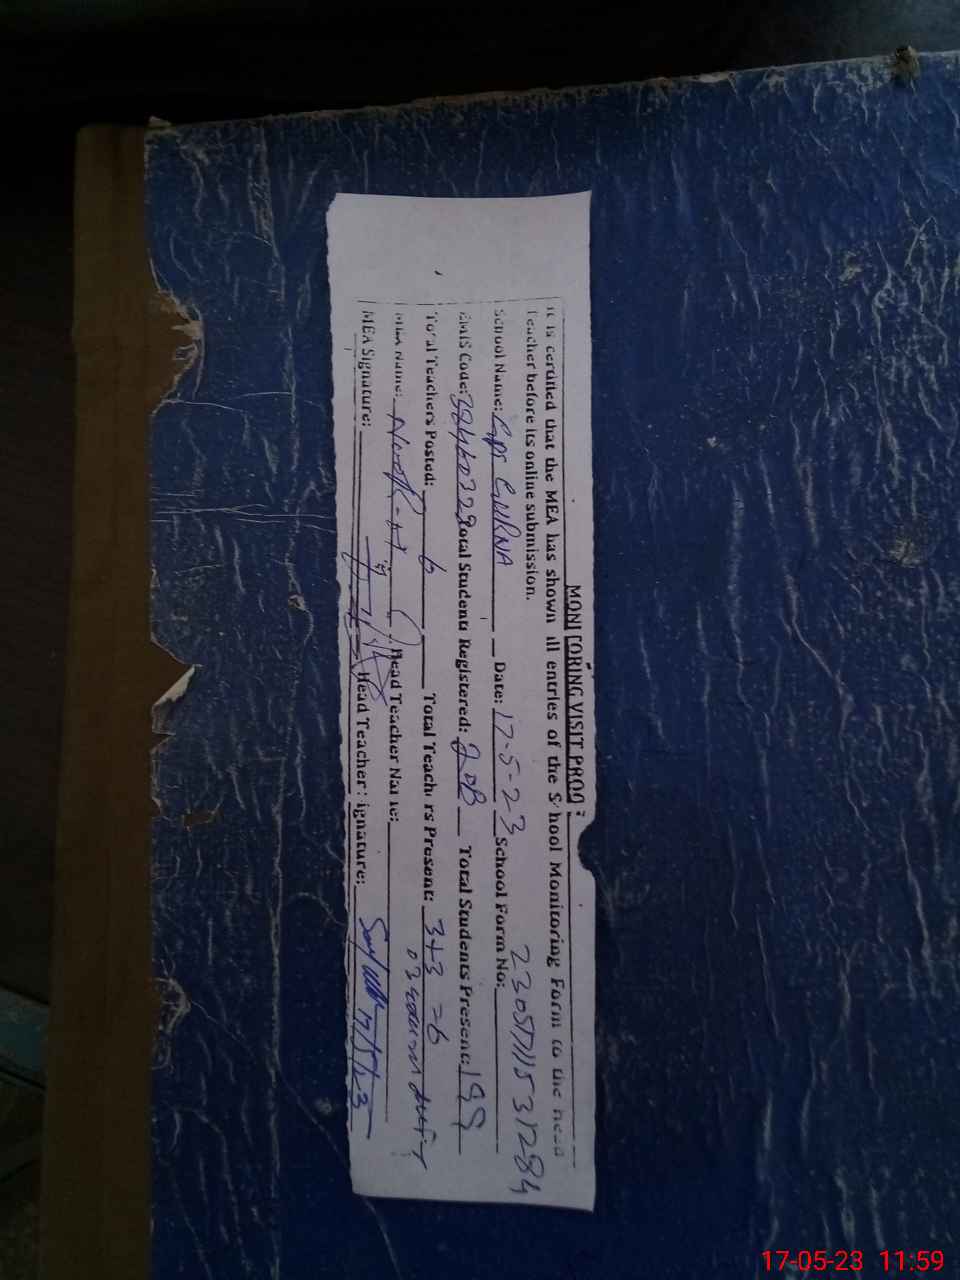 MONITORING VISIT PROO
It is certified that the MEA has shown all entries of the School Monitoring Form to the head
Teacher before its online submission.
School Name: GPS GURNA Date: 17-5-23 School Form No: 23051711531284
EMIS Code: 38460329 Total Students Registered: 208 Total Students Present: 199
Total Teachers Posted: 6 Total Teachers Present: 3+3 =6
MEA Name: Head Teacher Name: 03 duty
MEA Signature: Head Teacher Signature: 17/5/23
17-05-23 11:59